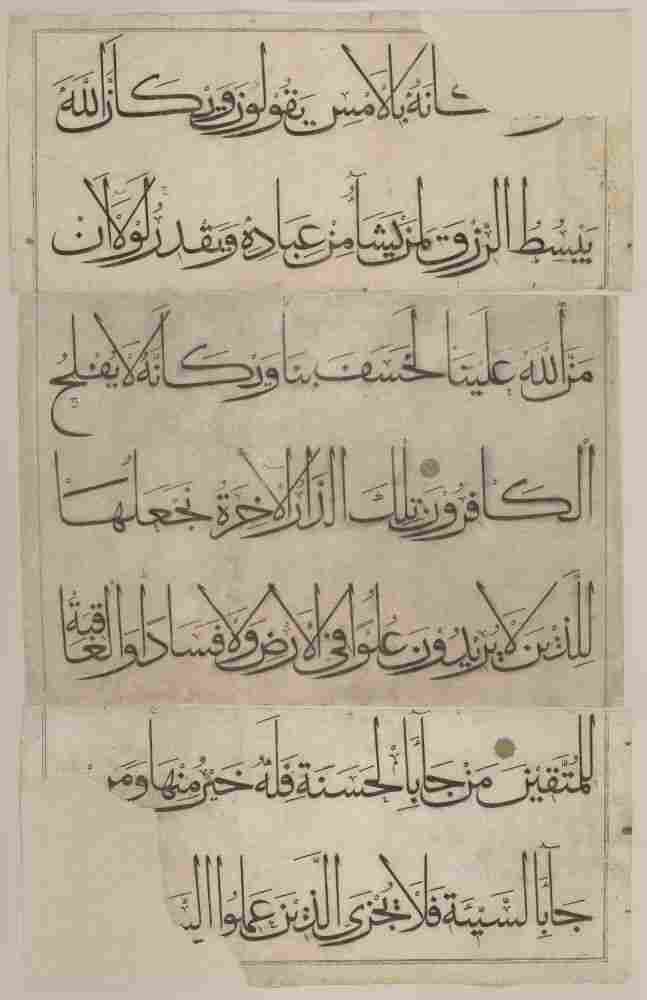 كانهُ بالامس يقولون ويكأنَّ اللّٰهَ
يبسُطُ الرّزق لمن يشآءُ من عِبادِهٖ ويقدرُ لولآ ان
منَّ اللّٰهُ علينا لخسفَ بنا ويكانّهُ لا يفلحُ
الكافرون تلكَ الدّارُ الاخرةُ نجعلها
للّذين لا يريدُون علُوّا فى الارض ولا فسادًا والعاقبةُ
للمتّقين من جآء بالحسنة فلهُ خيرٌ منها ومن
جآء بالسّيّئة فلا يُجزى الّذين عملُوا